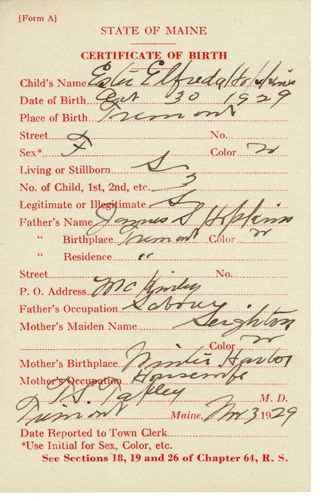 [Form A]
STATE OF MAINE
CERTIFICATE OF BIRTH
Child's Name Elfreda Hopkins
Date of Birth Oct 30 1929
Place of Birth Tremont
Street No.
Sex* F Color W
Living or Stillborn
No. of Child, 1st, 2nd, etc. 3
Legitimate or Illegitimate
Father's Name James S Hopkins
" Birthplace Tremont Color W
" Residence "
Street No.
P. O. Address McKinley
Father's Occupation
Mother's Maiden Name Leighton
Color W
Mother's Birthplace Winter Harbor
Mother's Occupation Housewife
Tapley M. D.
Tremont Maine, Nov 3 1929
Date Reported to Town Clerk
*Use Initial for Sex, Color, etc.
See Sections 18, 19 and 26 of Chapter 64, R. S.